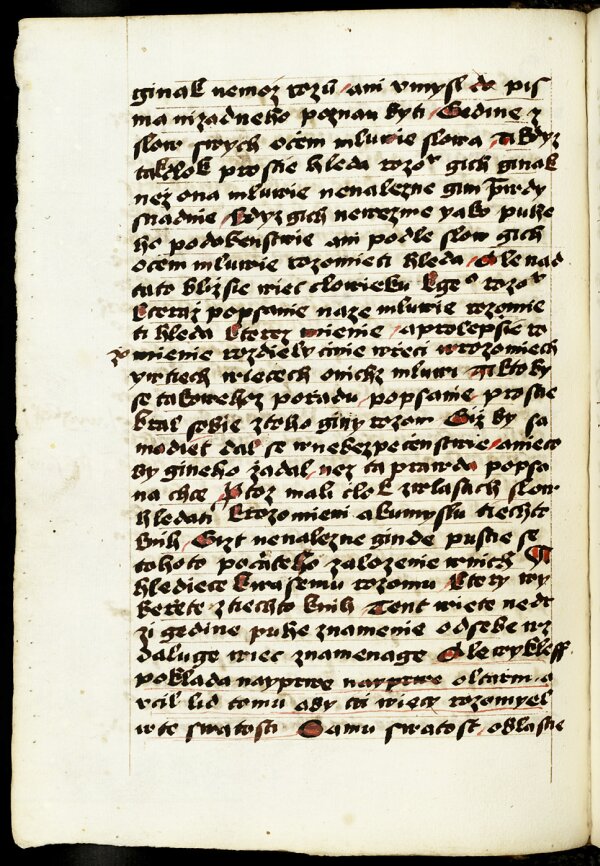 ginak nemoz rozū ani vmysl do pis
ma nizadneho poznan byti Gedine z
slow swych ocem mluwie slowa A kdyz
tak člok prostie hleda rozoͬ gich ginak
nez ona mluwie nenalezne gim Prwdy
snadnie kdyz gich newezme yako puhe
ho podobenstwie ani podle slow gich
ocem mluwie rozomieti hleda Ale nad
tato blizsie wiec clowieku kgeᵒ rozoͬ
kteraz popsanie naze mluwie rozomie
ti hleda kterez mienie aprolepsie ro
zo mienie rozdiely cinie wieci wrozomiech
ywtiech wiecech onichz mluwi A ktoby
se takowehoz poradu popsanie prostie
bral sobie ztoho giny rozom Giz by sa
madiel dal se wnebezpečenstwie anieco
by gineho zadal nez ta prawda popsa
na chce Ptoz mali člok zwlasich slow
hledati krozomieni akumyslu tiechto
knih Gizt nenalezne ginde pustie se
tohoto počateᵒ zalozenie wnich
hlediece kwasemu rozomu ktery wy
berete ztiechto knih Tent wiete nedr
zi gedine puhe znamenie odsebe wz
daluge wiec znamenage Ale wykleff
poklada nayprwe nayprwe oltarni a
vcil lid tomu aby tu wiecy rozomyel
wte swatosti Samu swatost oblastie